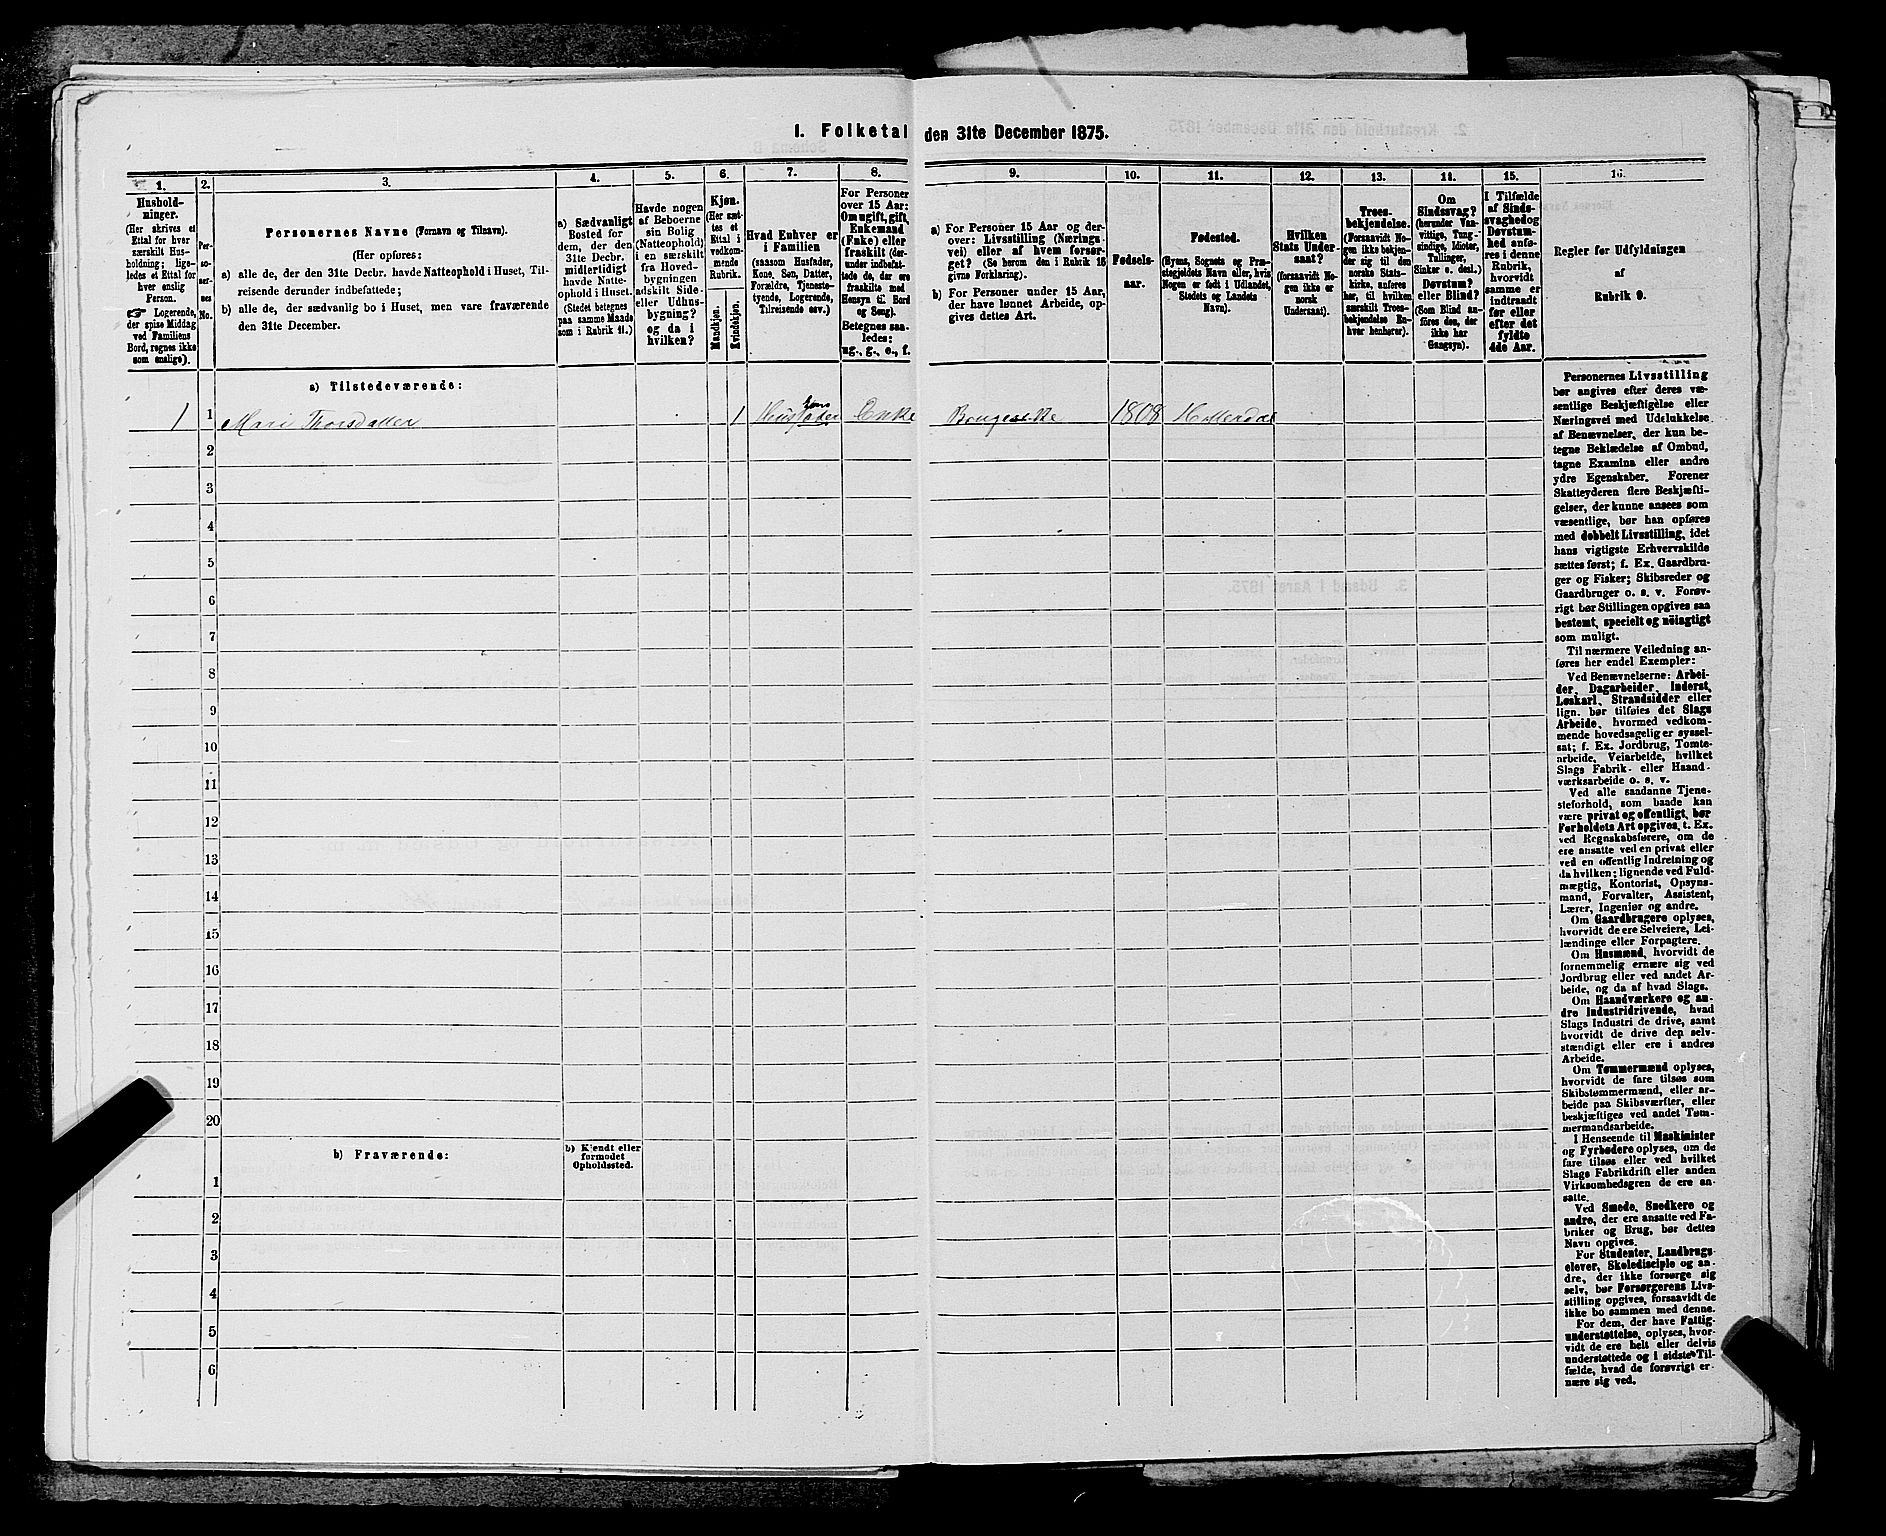 1. Folketal den 31te December 1875.
1.
2.
3.
4.
5.
6.
7.
8.
9.
10.
11.
12.
13.
14.
15.
16.
Hushold-
ninger.
(Her skrives et
Ettal for hver
særskilt Hus-
holdning; lige-
ledes et Ettal for
hver enslig
Person.
☞ Logerende,
der spise Middag
ved Familiens
Bord, regnes ikke
som enslige).
Per-
so-
ner-
nes
No.
Personernes Navne (Fornavn og Tilnavn).
(Her opføres:
a) alle de, der den 31te Decbr. havde Natteophold i Huset, Til-
reisende derunder indbefattede;
b) alle de, der sædvanlig bo i Huset, men vare fraværende
den 31te December.
a) Sædvanligt
Bosted for
dem, der den
31te Decbr.
midlertidigt
havde Natte-
ophold i Huset.
(Stedet betegnes
paa samme Maade
som i Rubrik 11.)
Havde nogen
af Beboerne
sin Bolig
(Natteophold)
i en særskilt
fra Hoved-
bygningen
adskilt Side-
eller Udhus-
bygning?
og da i
hvilken?
Kjøn.
(Her sæt-
tes et
Ettal i
vedkom-
mende
Rubrik.
Mandkjøn.
Kvindekjøn.
Hvad Enhver er
i Familien
(saasom Husfader,
Kone, Søn, Datter,
Forældre, Tjeneste-
tyende, Logerende,
Tilreisende osv.)
For Personer
over 15 Aar:
Om ugift, gift,
Enkemand
(Enke) eller
fraskilt (der-
under indbefat-
tede de, der ere
fraskilte med
Hensyn til Bord
og Seng).
Betegnes saa-
ledes:
ug., g., e., f.
a) For Personer 15 Aar og der-
over: Livsstilling (Nærings-
vei) eller af hvem forsør-
get? (Se herom den i Rubrik 16
givne Forklaring).
b) For Personer under 15 Aar,
der have lønnet Arbeide, op-
gives dettes Art.
Fødsels-
aar.
Fødested.
(Byens, Sognets og Præ-
stegjeldets Navn eller, hvis
Nogen er født i Udlandet,
Stedets og Landets
Navn).
Hvilken
Stats Under-
saat?
(forsaavidt No-
gen ikke er
norsk
Undersaat).
Troes-
bekjendelse.
(Forsaavidt No-
gen ikke bekjen-
der sig til den
norske Stats-
kirke, anføres
her, til hvilken
særskilt Troes-
bekjendelse En-
hver henhører).
Om
Sindssvag?
(herunder Van-
vittige, Tung-
sindige, Idioter,
Tullinger,
Sinker o. desl.)
Døvstum?
eller Blind?
(Som Blind an-
føres den, der
ikke har
Gangsyn).
I Tilfælde
af Sinds-
svaghed og
Døvstum-
hed anfø-
res i denne
Rubrik,
hvorvidt
samme er
indtraadt
før eller
efter det
fyldte
4de Aar.
Regler for Udfyldningen
af
Rubrik 9.
a) Tilstedeværende:
1 1 Mari Thorsdatter 1 Husfader Enke 1808 Hitterdal
2
3
4
5
6
7
8
9
10
11
12
13
14
15
16
17
18
19
20
b) Fraværende:
b) Kjendt eller
formodet
Opholdssted.
1
2
3
4
5
6
Personernes Livsstilling
bør angives efter deres væ-
sentlige Beskjæftigelse eller
Næringsvei med Udelukkelse
af Benævnelser, der kun be-
tegne Beklædelse af Ombud,
tagne Examina eller andre
ydre Egenskaber. Forener
Skatteyderen flere Beskjæfti-
gelser, der kunne ansees som
væsentlige, bør han opføres
med dobbelt Livsstilling, idet
hans vigtigste Erhvervskilde
sættes først; f. Ex. Gaardbru-
ger og Fisker; Skibsreder og
Gaardbruger o. s. v. Forøv-
rigt bør Stillingen opgives saa
bestemt, specielt og nöiagtigt
som muligt.
Til nærmere Veiledning an-
føres her endel Exempler:
Ved Benævnelserne: Arbei-
der, Dagarbeider, Inderst,
Løskarl, Strandsidder eller
lign. bør tilføies det Slags
Arbeide, hvormed vedkom-
mende hovedsagelig er syssel-
sat; f. Ex. Jordbrug, Tomte-
arbeide, Veiarbeide, hvilket
Slags Fabrik- eller Haand-
værksarbeide o. s. v.
Ved alle saadanne Tjene-
steforhold, som baade kan
være privat og offentligt, bør
Forholdets Art opgives, t. Ex.
ved Regnskabsførere, om de
ere ansatte ved en privat eller
ved en offentlig Indretning og
da hvilken; lignende ved Fuld-
mægtig, Kontorist, Opsyns-
mand, Forvalter, Assistent,
Lærer, Ingeniør og andre.
Om Gaardbrugere oplyses,
hvorvidt de ere Selveiere, Lei-
lændinge eller Forpagtere.
Om Husmænd, hvorvidt de
fornemmelig ernære sig ved
Jordbrug eller ved andet Ar-
beide, og da af hvad Slags.
Om Haandværkere og an-
dre Industridrivende, hvad
Slags Industri de drive, samt
hvorvidt de drive den selv-
stændigt eller ere i andres
Arbeide.
Om Tømmermænd oplyses,
hvorvidt de fare tilsøs som
Skibstømmermænd, eller ar-
beide paa Skibsværfter, eller
beskjæftiges ved andet Tøm-
mermandsarbeide.
I Henseende til Maskinister
og Fyrbødere oplyses, om de
fare tilsøs eller ved hvilket
Slags Fabrikdrift eller anden
Virksomhedsgren de ere an-
satte.
Ved Smede, Snedkere og
andre, der ere ansatte ved Fa-
briker og Brug, bør dettes
Navn opgives.
For Studenter, Landbrugs-
elever, Skoledisciple og an-
dre, der ikke forsørge sig
selv, bør Forsørgerens Livs-
stilling opgives, forsaavidt de
ikke bo sammen med denne.
For dem, der have Fattig-
understøttelse, oplyses, hvor-
vidt de ere helt eller delvis
understøttede og i sidste Til-
fælde, hvad de forøvrigt er-
nære sig ved.